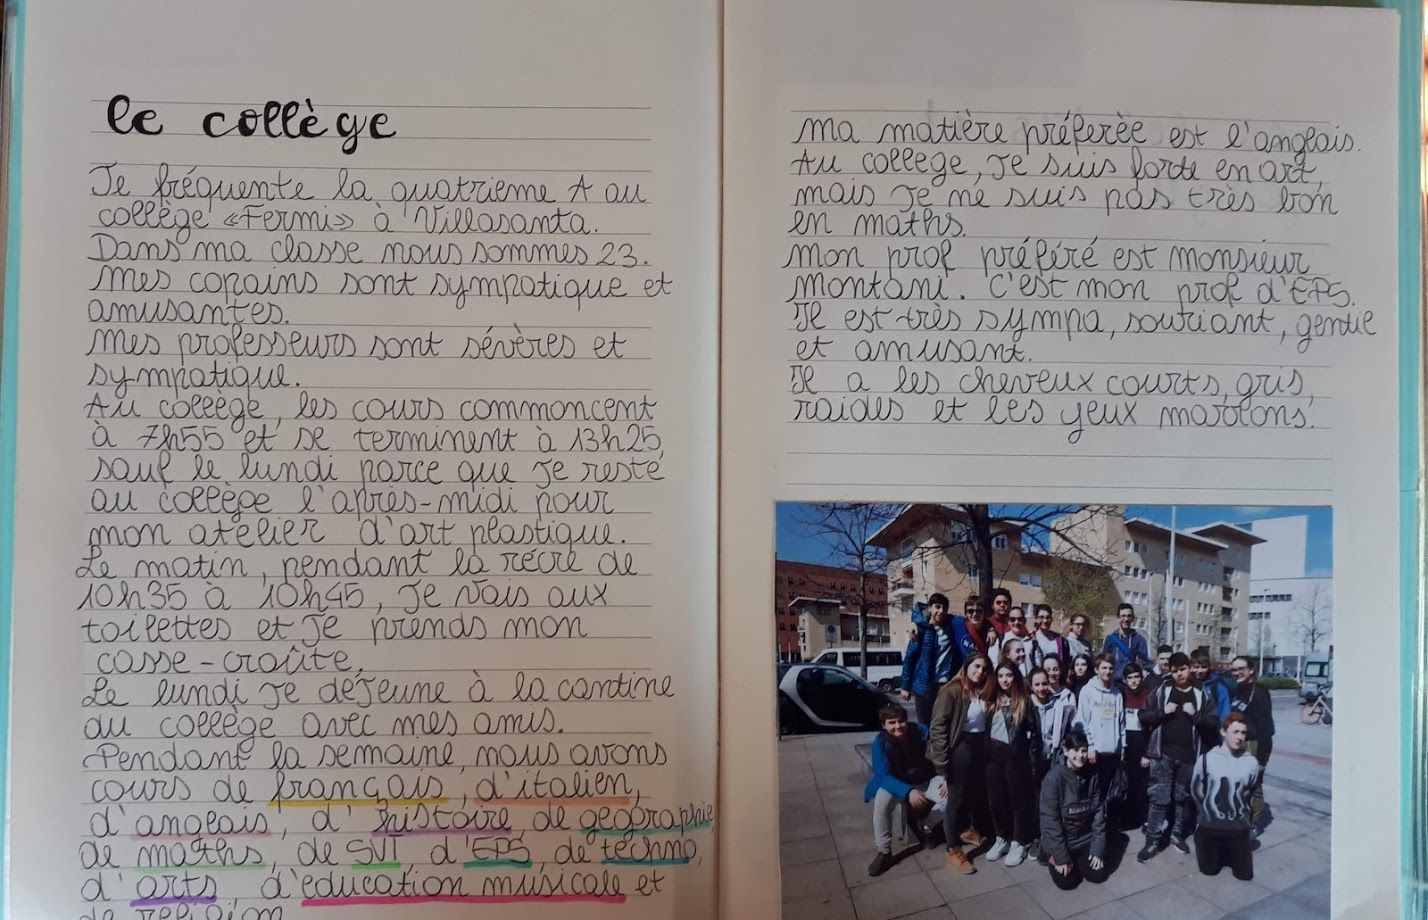 le collège
Je fréquente la quatrieme A au
collège «Fermi» à Villasanta.
Dans ma classe nous sommes 23.
Mes copains sont sympatique et
amusantes.
Mes professeurs sont sévères et
sympatique.
Au collège, les cours commoncent
à 7h55 et se terminent à 13h25,
sauf le lundi parce que je reste
au collège l'après-midi pour
mon atelier d'art plastique.
Le matin, pendant la récré de
10h35 à 10h45, je vais aux
toilettes et je prends mon
casse-croûte.
Le lundi je déjeune à la cantine
du collège avec mes amis.
Pendant la semaine, nous avons
cours de français, d'italien,
d'anglais, d'histoire, de geógraphie,
de maths, de SVT, d'EPS, de techno,
d'arts, d'education musicale et
de religion
Ma matière préferèe est l'anglais.
Au college, je suis forte en art,
mais je ne suis pas très bon
en maths.
Mon prof préféré est monsieur
Montani. C'est mon prof d'EPS.
Il est très sympa, souriant, gentil
et amusant.
Il a les cheveux courts, gris,
raides et les yeux marrons.